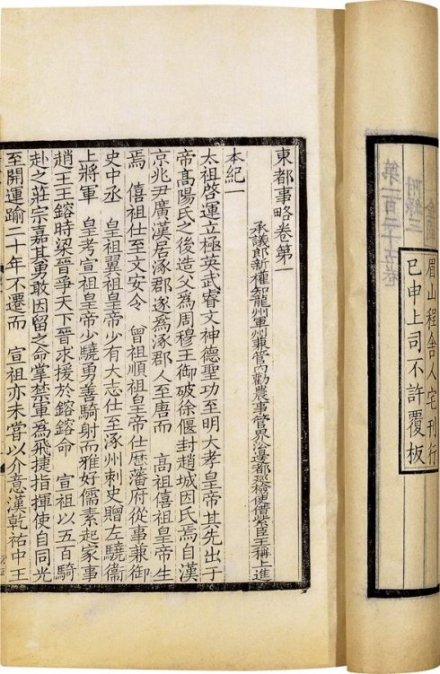 眉山程舍人宅刊行
已申上司不許覆板
東都事略卷第一
承議郎新權知龍州軍州兼管內勸農事管界沿邊都巡檢使借紫臣王稱上進
本紀一
太祖啓運立極英武睿文神德聖功至明大孝皇帝其先出于
帝高陽氏之後造父為周穆王御破徐偃封趙城因氏焉自漢
京兆尹廣漢居涿郡遂為涿郡人至唐而　高祖僖祖皇帝生
焉　僖祖仕至文安令　曾祖順祖皇帝仕歴藩府從事兼御
史中丞　皇祖翼祖皇帝少有大志仕至涿州刺史贈左驍衛
上將軍　皇考宣祖皇帝少驍勇善騎射而雅好儒素起家事
趙王王鎔時梁晉爭天下晉求援於鎔鎔命　宣祖以五百騎
赴之莊宗嘉其勇敢因留之命掌禁軍為飛捷指揮使自同光
至開運踰二十年不遷而　宣祖亦未嘗以介意漢乾祐中王